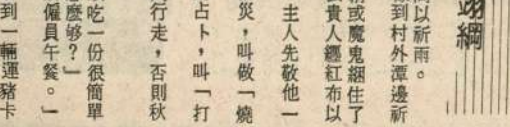 翊綱
以祈雨。
到村外潭邊祈
或魔鬼綑住了
貴人纏紅布以
主人先敬他一
災，叫做「燒
占卜，叫「打
行走，否則秋
吃一份很簡單
麼夠？」
僱員午餐。」
到一輛運豬卡